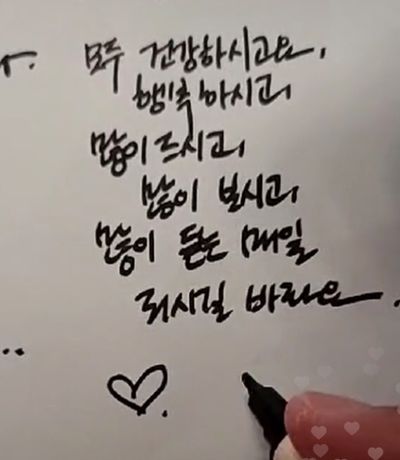 모두 건강하시고요,
행복하시고,
많이 드시고,
많이 보시고,
많이 듣는 매일
되시길 바라요.